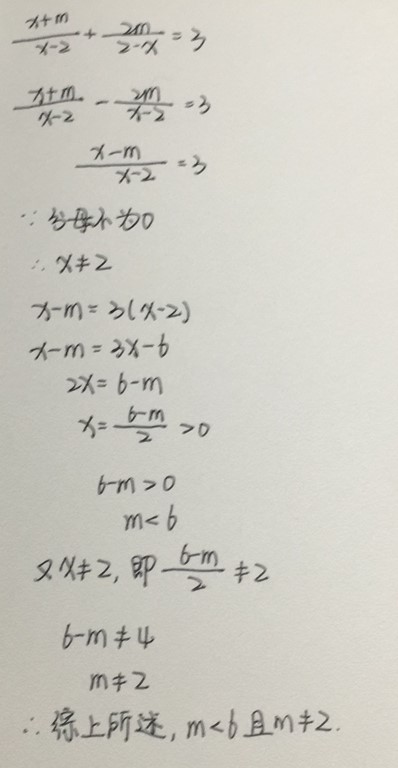 (x+m)/(x-2) + 2m/(2-x) = 3
(x+m)/(x-2) - 2m/(x-2) = 3
(x-m)/(x-2) = 3
∵ 分母不为0
∴ x≠2
x-m = 3(x-2)
x-m = 3x-6
2x = 6-m
x = (6-m)/2 >0
6-m >0
m<6
又x≠2, 即 (6-m)/2 ≠2
6-m ≠ 4
m≠2
∴ 综上所述, m<6且m≠2.